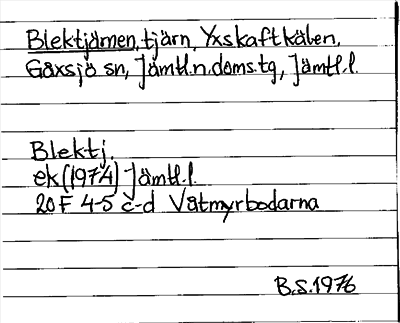 Blektjämen, tjärn, Yxskaftkälen,
Gåxsjö sn, Jämtl.n.doms.tg, Jämtl.l.
Blektj.
ek (1974) Jämtl.l.
20 F 4-5 c-d Våtmyrbodarna
B.S.1976